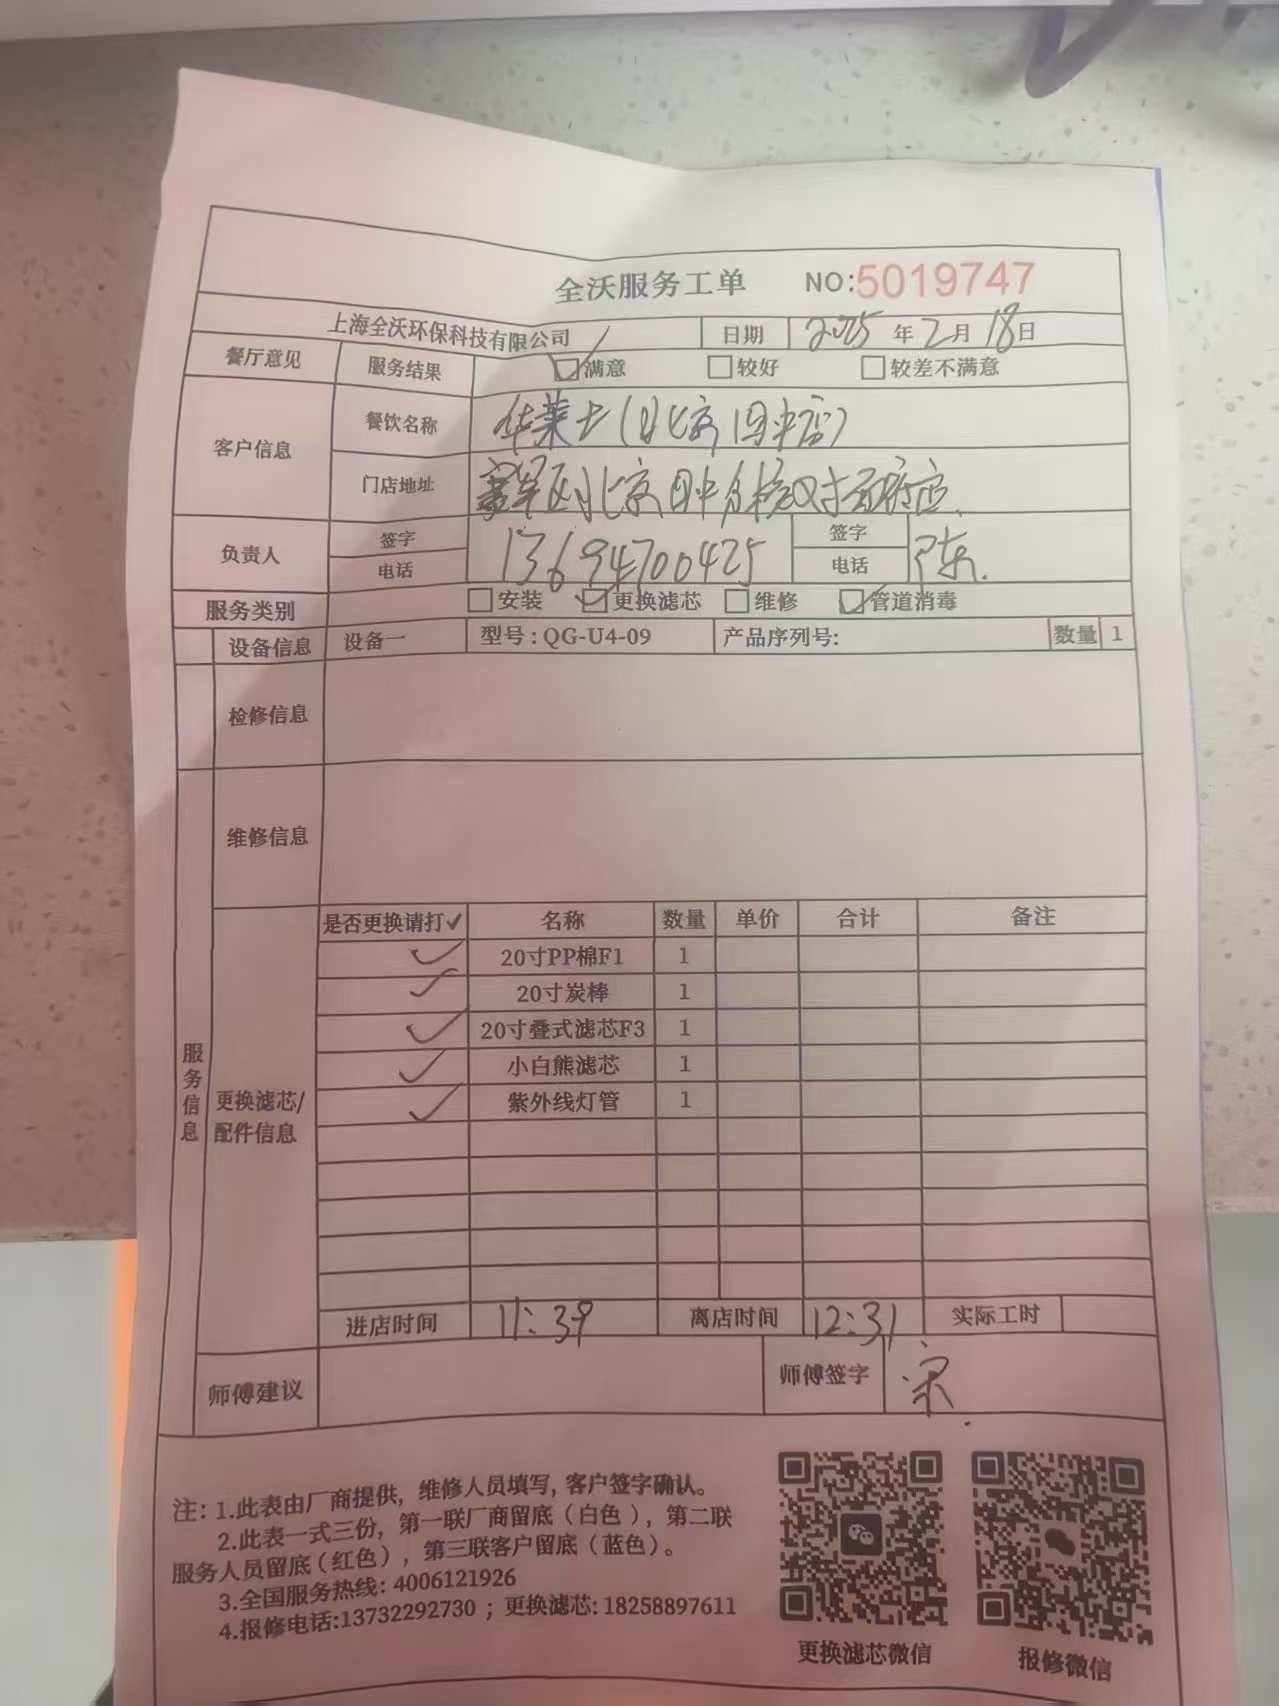 全沃服务工单 NO:5019747
上海全沃环保科技有限公司 日期 2025年2月18日
餐厅意见 服务结果 ☑满意 □较好 □较差不满意
客户信息 餐饮名称 华莱士(北京 店)
门店地址 区 北京
负责人 签字 电话 13694700425 签字 电话 陈.
服务类别 □安装 ☑更换滤芯 □维修 ☑管道消毒
设备信息 设备一 型号:QG-U4-09 产品序列号: 数量 1
检修信息
维修信息
服务信息
更换滤芯/配件信息
是否更换请打✓ 名称 数量 单价 合计 备注
✓ 20寸PP棉F1 1
✓ 20寸炭棒 1
✓ 20寸叠式滤芯F3 1
✓ 小白熊滤芯 1
✓ 紫外线灯管 1
进店时间 11:39 离店时间 12:31 实际工时
师傅建议 师傅签字 宋.
注: 1.此表由厂商提供, 维修人员填写, 客户签字确认。
2.此表一式三份, 第一联厂商留底(白色), 第二联
服务人员留底(红色), 第三联客户留底(蓝色)。
3.全国服务热线: 4006121926
4.报修电话:13732292730 ; 更换滤芯: 18258897611
更换滤芯微信 报修微信